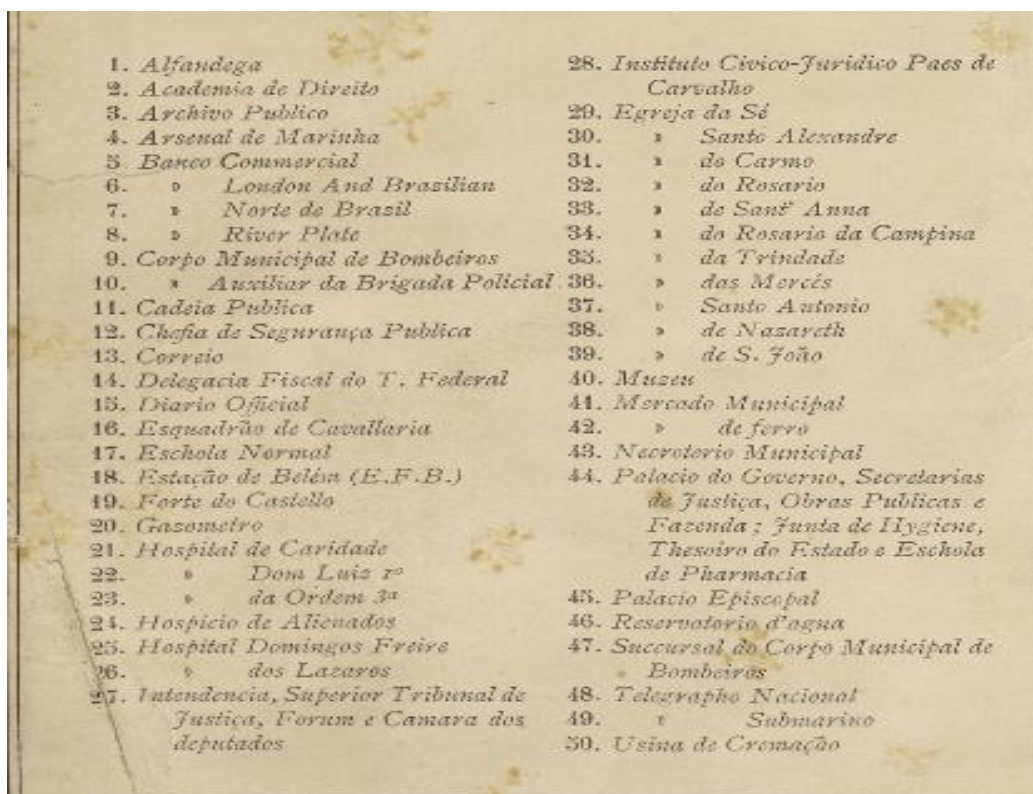 1. Alfandega
2. Academia de Direito
3. Archivo Publico
4. Arsenal de Marinha
5. Banco Commercial
6. » London And Brazilian
7. » Norte de Brazil
8. » River Plate
9. Corpo Municipal de Bombeiros
10. » Auxiliar da Brigada Policial
11. Cadeia Publica
12. Chefia de Segurança Publica
13. Correio
14. Delegacia Fiscal do T. Federal
15. Diario Official
16. Esquadrão de Cavallaria
17. Eschola Normal
18. Estação de Belém (E.F.B.)
19. Forte do Castello
20. Gazometro
21. Hospital de Caridade
22. » Dom Luiz 1º
23. » da Ordem 3ª
24. Hospicio de Alienados
25. Hospital Domingos Freire
26. » dos Lazaros
27. Intendencia, Superior Tribunal de
Justiça, Forum e Camara dos
deputados
28. Instituto Civico-Juridico Paes de
Carvalho
29. Egreja da Sé
30. » Santo Alexandre
31. » do Carmo
32. » do Rosario
33. » de Sant' Anna
34. » do Rosario da Campina
35. » da Trindade
36. » das Mercés
37. » Santo Antonio
38. » de Nazareth
39. » de S. João
40. Muzeu
41. Mercado Municipal
42. » de ferro
43. Necroterio Municipal
44. Palacio do Governo, Secretarias
de Justiça, Obras Publicas e
Fazenda; Junta de Hygiene,
Thesoiro do Estado e Eschola
de Pharmacia
45. Palacio Episcopal
46. Reservatorio d'agua
47. Succursal do Corpo Municipal de
Bombeiros
48. Telegrapho Nacional
49. » Submarino
50. Usina de Cremação